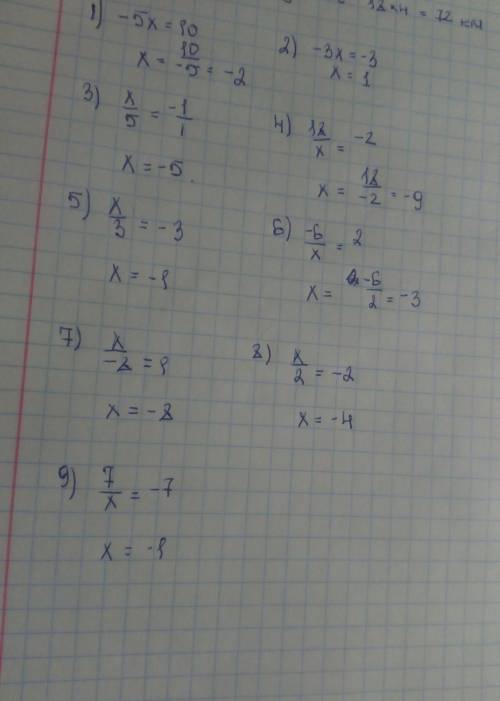 18×4 = 72 км
1) -5x = 10
x = 10/-5 = -2
2) -3x = -3
x = 1
3) x/5 = -1/1
x = -5.
4) 18/x = -2
x = 18/-2 = -9
5) x/3 = -3
x = -9
6) -6/x = 2
x = -6/2 = -3
7) x/-8 = 1
x = -8
8) x/2 = -2
x = -4
9) 7/x = -7
x = -1